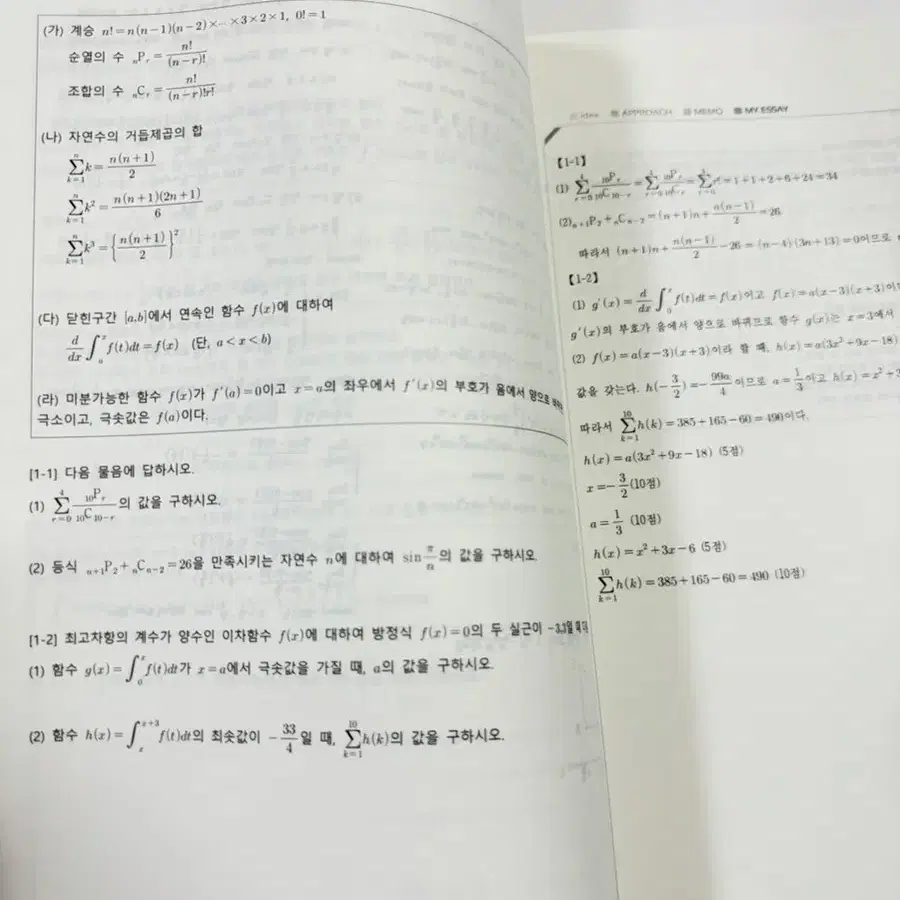 (가) 계승 n!=n(n-1)(n-2)×…×3×2×1, 0!=1
순열의 수 ₙPᵣ = n!/(n-r)!
조합의 수 ₙCᵣ = n!/(n-r)!r!
(나) 자연수의 거듭제곱의 합
∑_{k=1}^{n} k = n(n+1)/2
∑_{k=1}^{n} k² = n(n+1)(2n+1)/6
∑_{k=1}^{n} k³ = {n(n+1)/2}²
(다) 닫힌구간 [a,b]에서 연속인 함수 f(x)에 대하여
d/dx ∫_{a}^{x} f(t)dt = f(x) (단, a<x<b)
(라) 미분가능한 함수 f(x)가 f′(a)=0이고 x=a의 좌우에서 f′(x)의 부호가 음에서 양으로
극소이고, 극솟값은 f(a)이다.
[1-1] 다음 물음에 답하시오.
(1) ∑_{r=0}^{4} ₁₀Pᵣ/₁₀C₁₀₋ᵣ 의 값을 구하시오.
(2) 등식 ₙ₊₁P₂+ₙCₙ₋₂=26을 만족시키는 자연수 n에 대하여 sin π/n 의 값을 구하시오.
[1-2] 최고차항의 계수가 양수인 이차함수 f(x)에 대하여 방정식 f(x)=0의 두 실근이 -3,3일 때
(1) 함수 g(x)=∫_{0}^{x} f(t)dt가 x=a에서 극솟값을 가질 때, a의 값을 구하시오.
(2) 함수 h(x)=∫_{x}^{x+3} f(t)dt의 최솟값이 -33/4일 때, ∑_{k=1}^{10} h(k)의 값을 구하시오.
idea APPROACH MEMO MY ESSAY
【1-1】
(1) ∑_{r=0}^{4} ₁₀Pᵣ/₁₀C₁₀₋ᵣ = ∑_{r=0}^{4} ₁₀Pᵣ/₁₀Cᵣ = ∑_{r=0}^{4} r! = 1+1+2+6+24=34
(2) ₙ₊₁P₂+ₙCₙ₋₂=(n+1)n+n(n-1)/2=26
따라서 (n+1)n+n(n-1)/2-26=(n-4)(3n+13)=0이므로
【1-2】
(1) g′(x)=d/dx ∫_{0}^{x} f(t)dt=f(x)이고 f(x)=a(x-3)(x+3)이
g′(x)의 부호가 음에서 양으로 바뀌므로 함수 g(x)는 x=3에서
(2) f(x)=a(x-3)(x+3)이라 할 때, h(x)=a(3x²+9x-18)
값을 갖는다. h(-3/2)=-99a/4이므로 a=1/3이고 h(x)=x²+3
따라서 ∑_{k=1}^{10} h(k)=385+165-60=490이다.
h(x)=a(3x²+9x-18) (5점)
x=-3/2 (10점)
a=1/3 (10점)
h(x)=x²+3x-6 (5점)
∑_{k=1}^{10} h(k)=385+165-60=490 (10점)